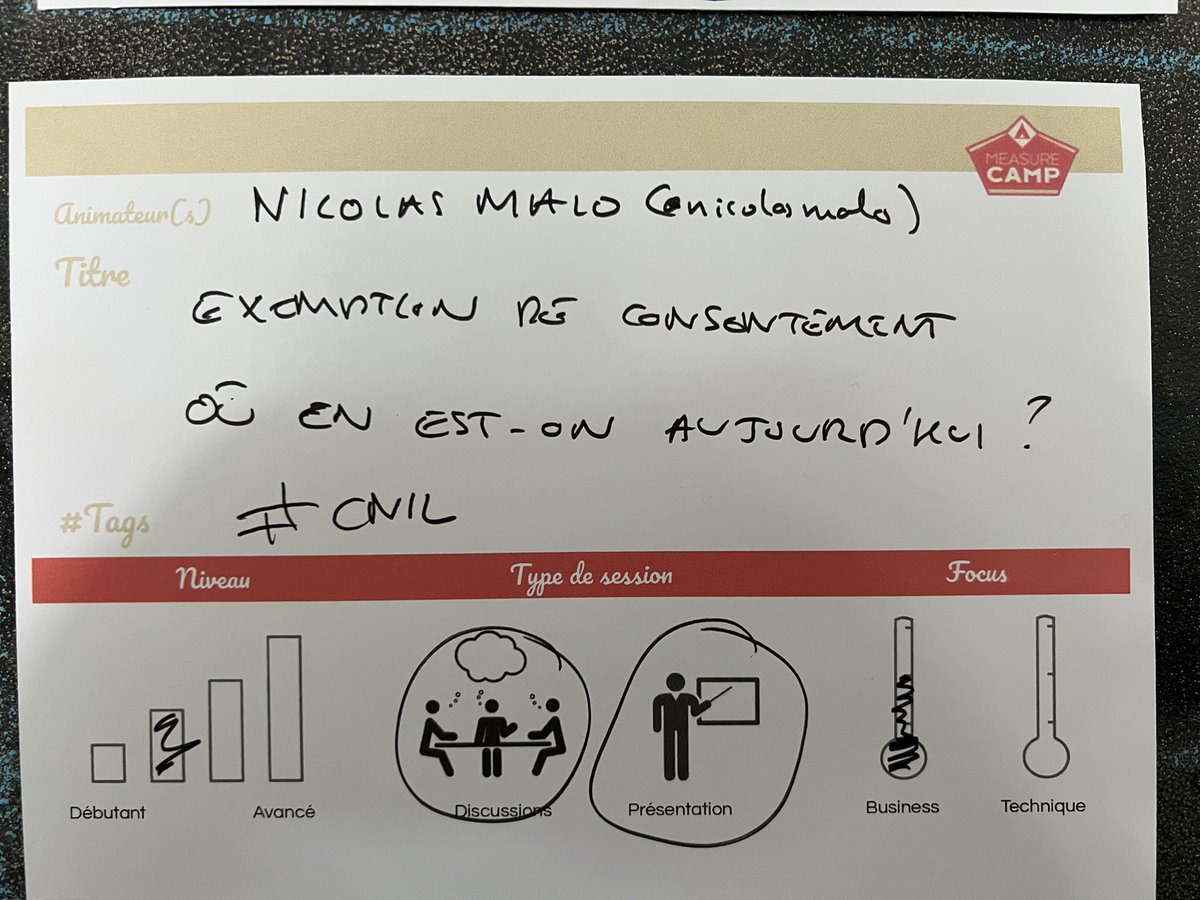 MEASURE
CAMP
Animateur(s) NICOLAS MALO (@nicolasmalo)
Titre
EXEMPTION DE CONSENTEMENT
OÙ EN EST-ON AUJOURD'HUI ?
#Tags #CNIL
Niveau Type de session Focus
Débutant Avancé Discussions Présentation Business Technique